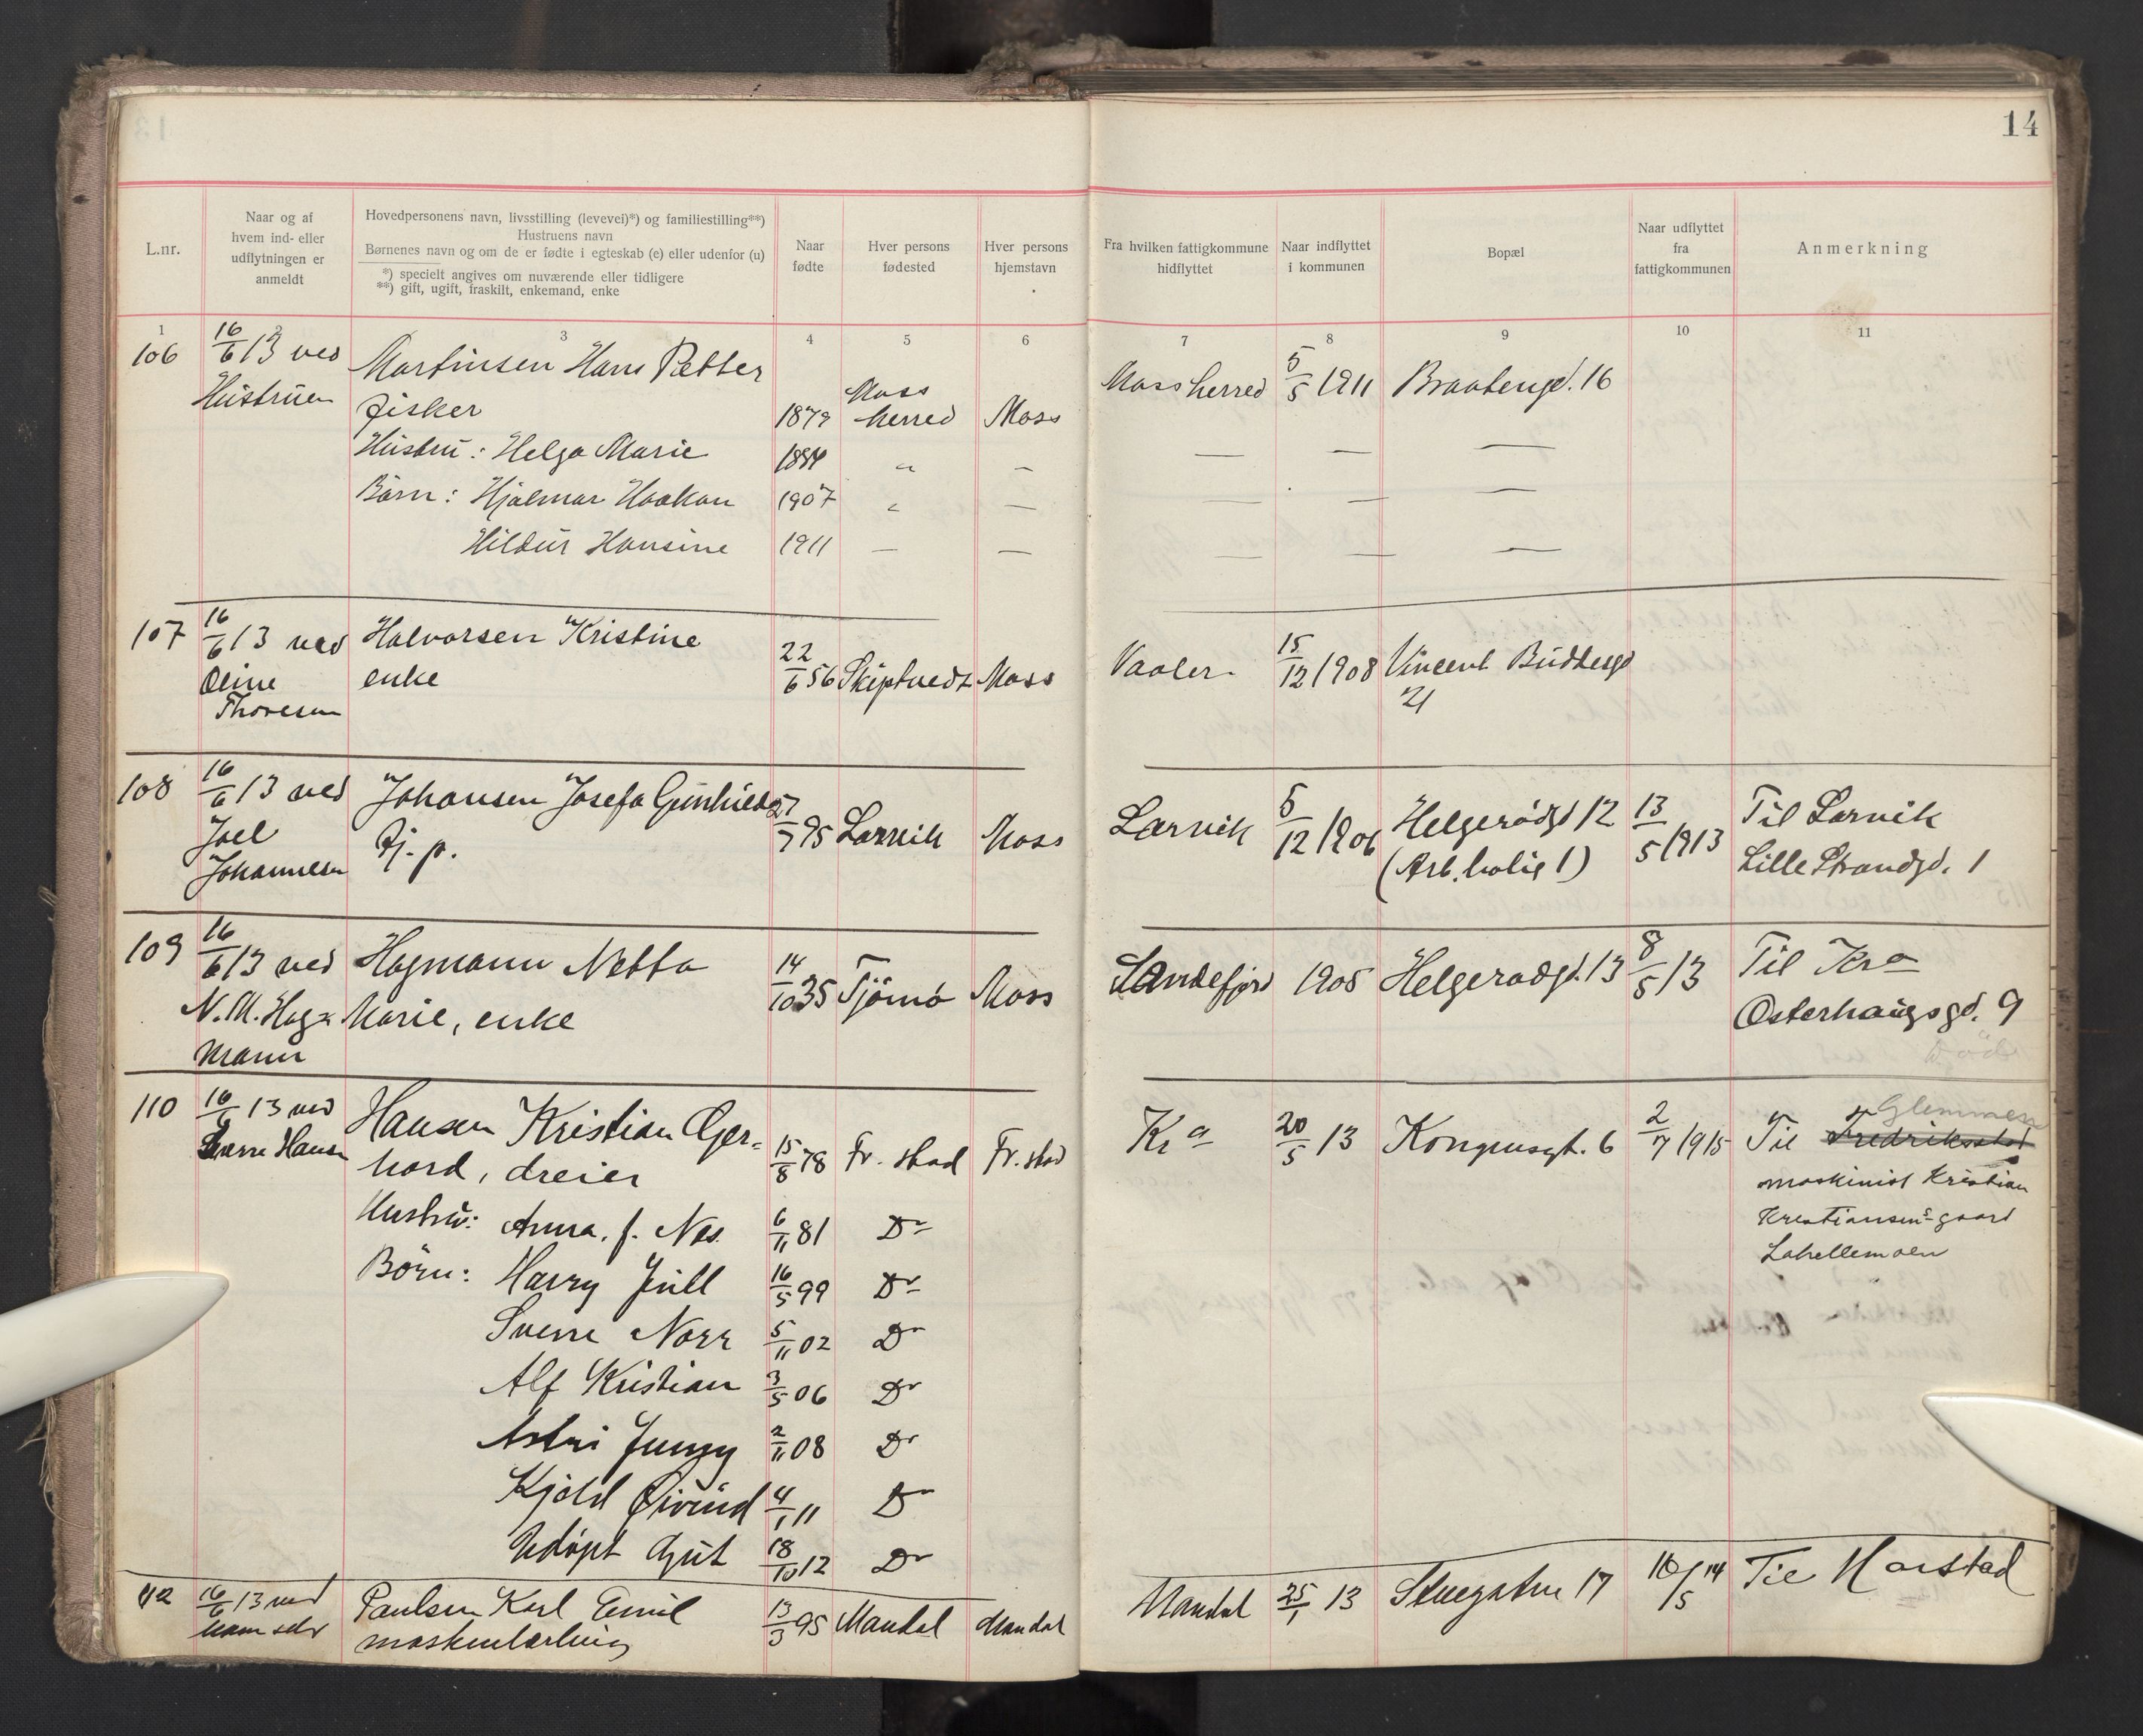 14
L.nr.
Naar og af
hvem ind- eller
udflytningen er
anmeldt
Hovedpersonens navn, livsstilling (levevei)*) og familiestilling**)
Hustruens navn
Børnenes navn og om de er fødte i egteskab (e) eller udenfor (u)
*) specielt angives om nuværende eller tidligere
**) gift, ugift, fraskilt, enkemand, enke
Naar
fødte
Hver persons
fødested
Hver persons
hjemstavn
Fra hvilken fattigkommune
hidflyttet
Naar indflyttet
i kommunen
Bopæl
Naar udflyttet
fra
fattigkommunen
Anmerkning
1 2 3 4 5 6 7 8 9 10 11
106 16/6 13 ved Martinsen Hans Petter Moss herred 5/5 1911 Braatengd. 16
Hustruen Fisker 1879 Moss herred Moss
Hustru: Helga Marie 1884 " — — — —
Børn: Hjalmar Haakon 1907 " — — — —
Hildur Hansine 1911 — — — — —
107 16/6 13 ved Halvorsen Kristine 22/6 56 Skiptvedt Moss Vaaler 15/12 1908 Vincent Buddesgd
Oline enke 21
Thoresen
108 16/6 13 ved Johansen Josefa Gunhilda 27/7 95 Larvik Moss Larvik 5/12 1906 Helgerødgt 12 13/5 1913 Til Larvik
Joel Tj. p. (Arb.bolig 1) Lille Strandgd. 1
Johannesen
109 16/6 13 ved Hagmann Netta 14/10 35 Tjömö Moss Sandefjord 1905 Helgerødgt. 13 8/5 13 Til Kra
N. M. Hag= Marie, enke Osterhaugsgd. 9
mann Död
110 16/6 13 ved Hansen Kristian Ger= 15/8 78 Fr. stad Fr. stad Kra 20/5 13 Kongensgt. 6 2/7 1915 Til Fredriksstad Glemmen
Sverre Hansen hard, dreier maskinist Kristian
Hustru: Anna. f. Nes. 6/11 81 Do Kristiansens-gaard
Børn: Harry Juell 16/5 99 Do Lahellemoen
Sverre Norr 5/11 02 Do
Alf Kristian 3/5 06 Do
Astri Jenny 2/11 08 Do
Kjold Øivind 4/1 11 Do
Udöpt Gut 18/10 12 Do
112 16/6 13 ved Paulsen Karl Emil 13/3 95 Mandal Mandal Mandal 25/1 13 Skuegaten 17 16/5 14 Til Harstad
ham selv maskinlærling